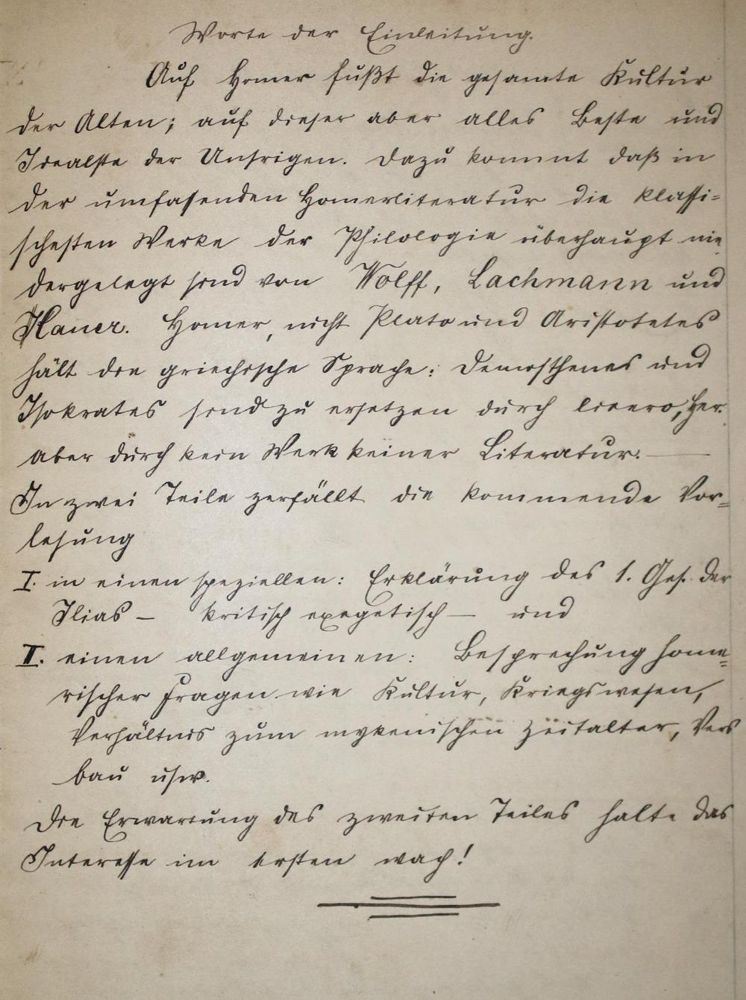 Worte der Einleitung.
Auf Homer fußt die gesamte Kultur
der Alten; auf dieser aber alles Beste und
Idealste der Unsrigen. Dazu kommt daß in
der umfasenden Homerliteratur die klassi=
schesten Werke der Philologie überhaupt nie
dergelegt sind von Wolff, Lachmann und
Homer, nicht Plato und Aristoteles
hält die griechische Sprache: Demosthenes und
Isokrates sind zu ersetzen durch Cicero, Her.
aber durch kein Werk keiner Literatur. —
In zwei Teile zerfällt die kommende Vor=
lesung
I. in einen speziellen: Erklärung des 1. Ges. der
Ilias — kritisch exegetisch — und
II. einen allgemeinen: Besprechung home=
rischer Fragen wie Kultur, Kriegswesen,
Verhältnis zum mykenischen Zeitalter, Vers
bau usw.
Die Erwartung des zweiten Teiles halte das
Interesse im ersten wach!